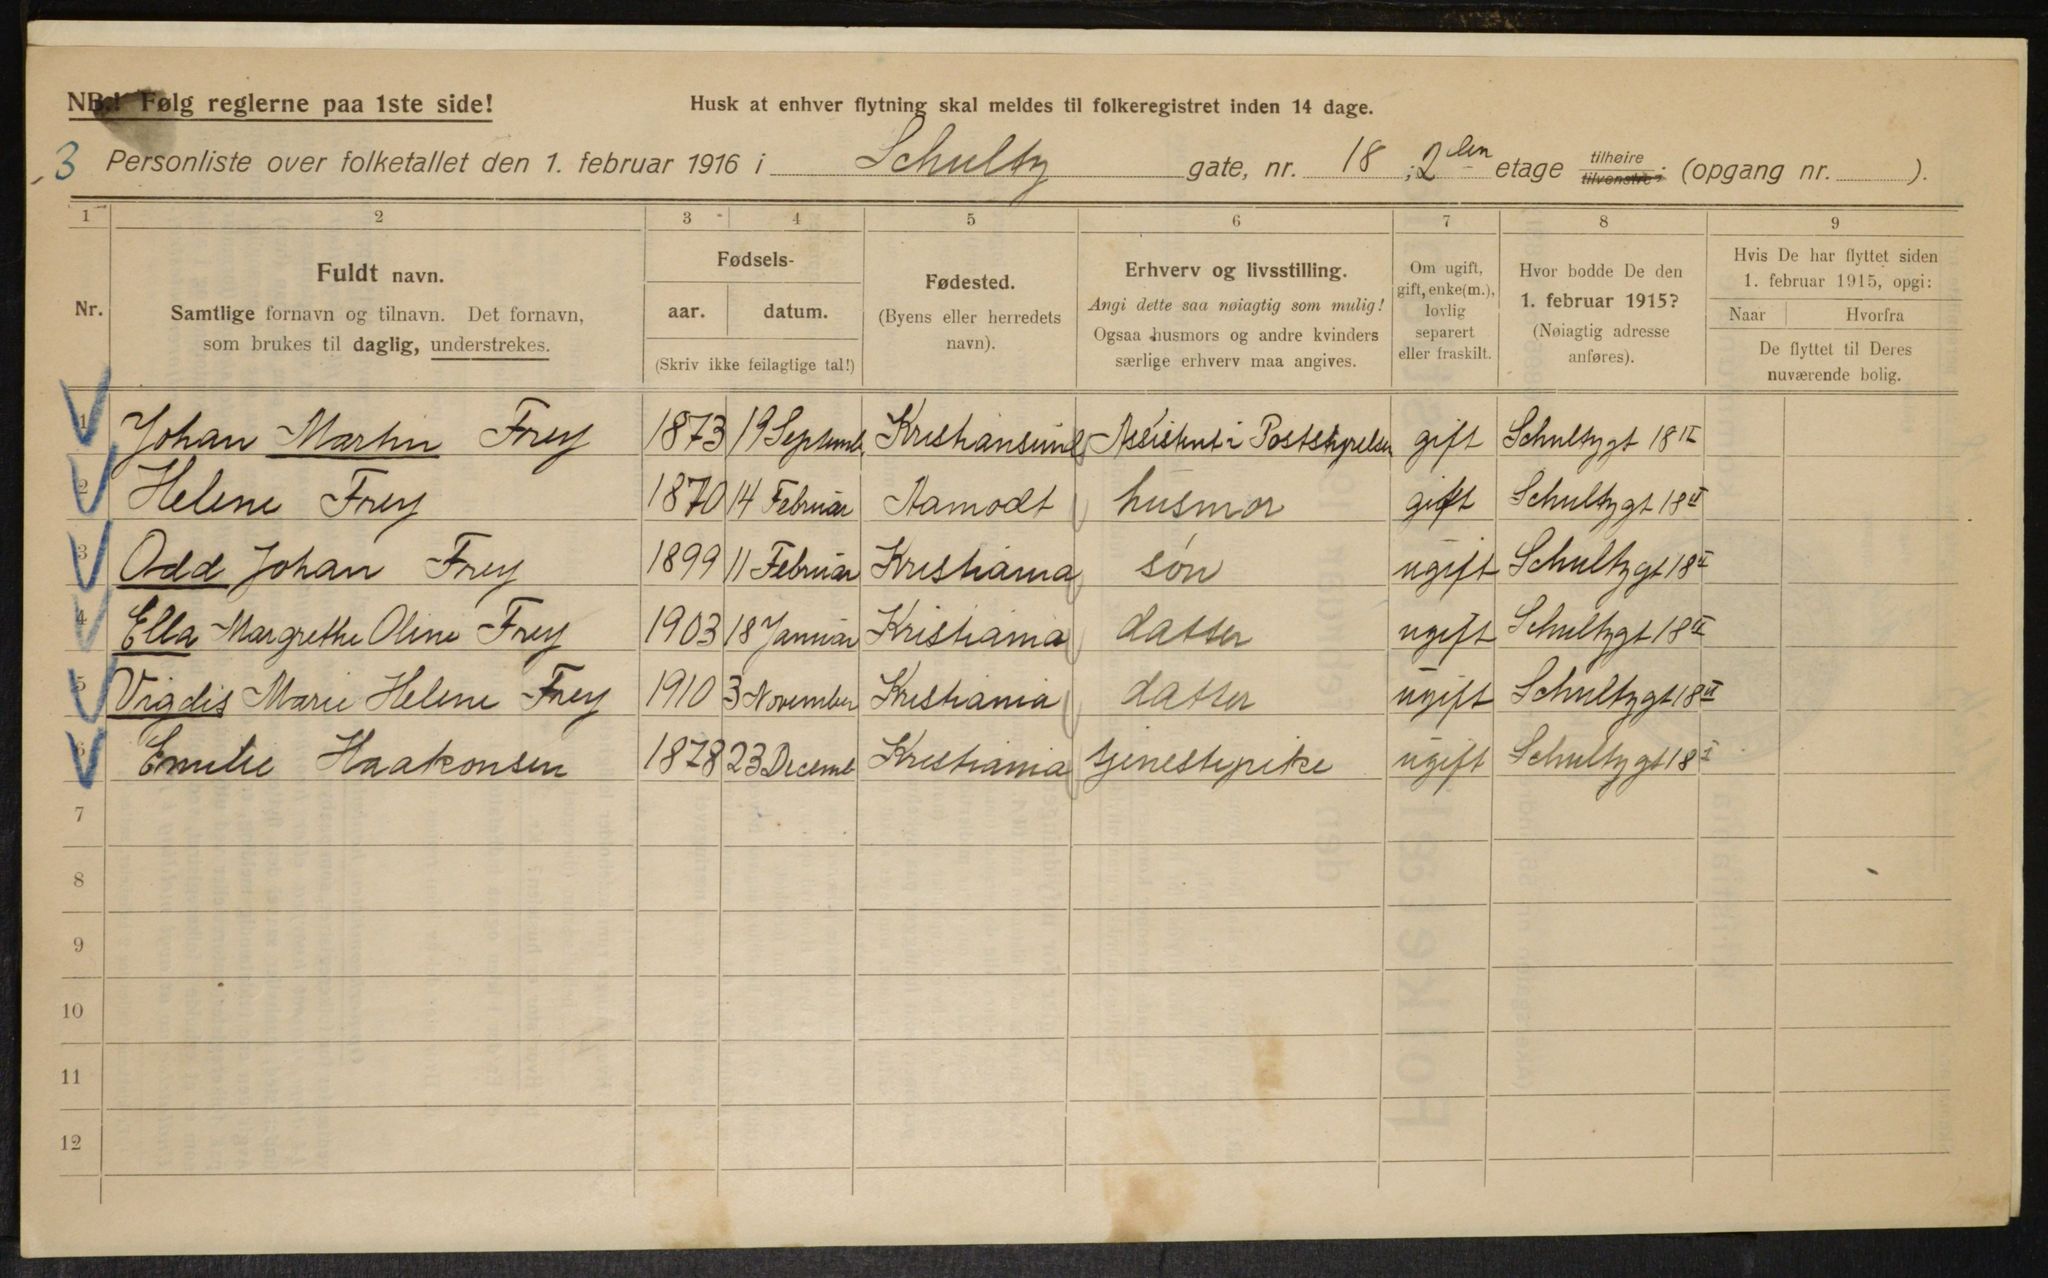 NB.! Følg reglerne paa 1ste side!
Husk at enhver flytning skal meldes til folkeregistret inden 14 dage.
3 Personliste over folketallet den 1. februar 1916 i Schultz gate, nr. 18 ; 2den etage tilhøire tilvenstre (opgang nr. ).
1 2 3 4 5 6 7 8 9
Nr.
Fuldt navn.
Samtlige fornavn og tilnavn. Det fornavn,
som brukes til daglig, understrekes.
Fødsels-
aar. datum.
(Skriv ikke feilagtige tal!)
Fødested.
(Byens eller herredets
navn).
Erhverv og livsstilling.
Angi dette saa nøiagtig som mulig!
Ogsaa husmors og andre kvinders
særlige erhverv maa angives.
Om ugift,
gift, enke(m.),
lovlig
separert
eller fraskilt.
Hvor bodde De den
1. februar 1915?
(Nøiagtig adresse
anføres).
Hvis De har flyttet siden
1. februar 1915, opgi:
Naar Hvorfra
De flyttet til Deres
nuværende bolig.
1 Johan Martin Frey 1873 19 Septemb. Kristiansund Assistent i Poststyrelsen gift Schultzgt 18 II
2 Helene Frey 1870 14 Februar Aamodt husmor gift Schultzgt 18 II
3 Odd Johan Frey 1899 11 Februar Kristiania søn ugift Schultzgt 18 II
4 Ella Margrethe Oline Frey 1903 18 Januar Kristiania datter ugift Schultzgt 18 II
5 Vigdis Marie Helene Frey 1910 3 November Kristiania datter ugift Schultzgt 18 II
6 Emilie Haakonsen 1878 23 Decemb Kristiania tjenestepike ugift Schultzgt 18
7
8
9
10
11
12